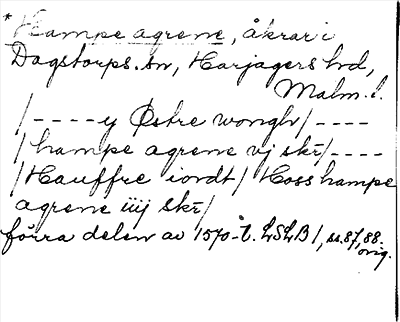 * Hampe agrene, åkrar i
Dagstorps sn, Harjagers hd,
Malm. l.
/----y Østre wongh/----
/hampe agrene vj skr/----
/Hauffre iordt/ Hoss hampe
agrene iiij skr/
förra delen av 1570-t. LSLB 1, ss. 87, 88.
orig.